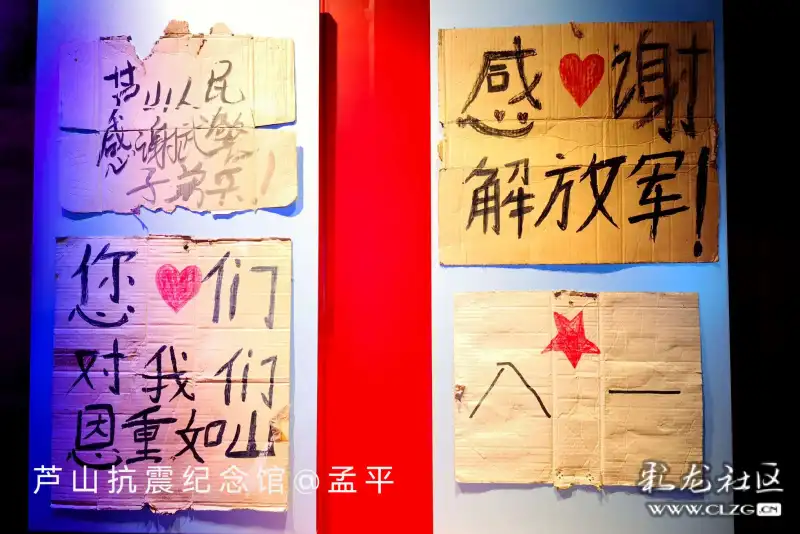 芦山人民
感谢武警
子弟兵!
您们
对我们
恩重如山
感谢
解放军!
八一
芦山抗震纪念馆@孟平
彩龙社区
WWW.CLZG.CN